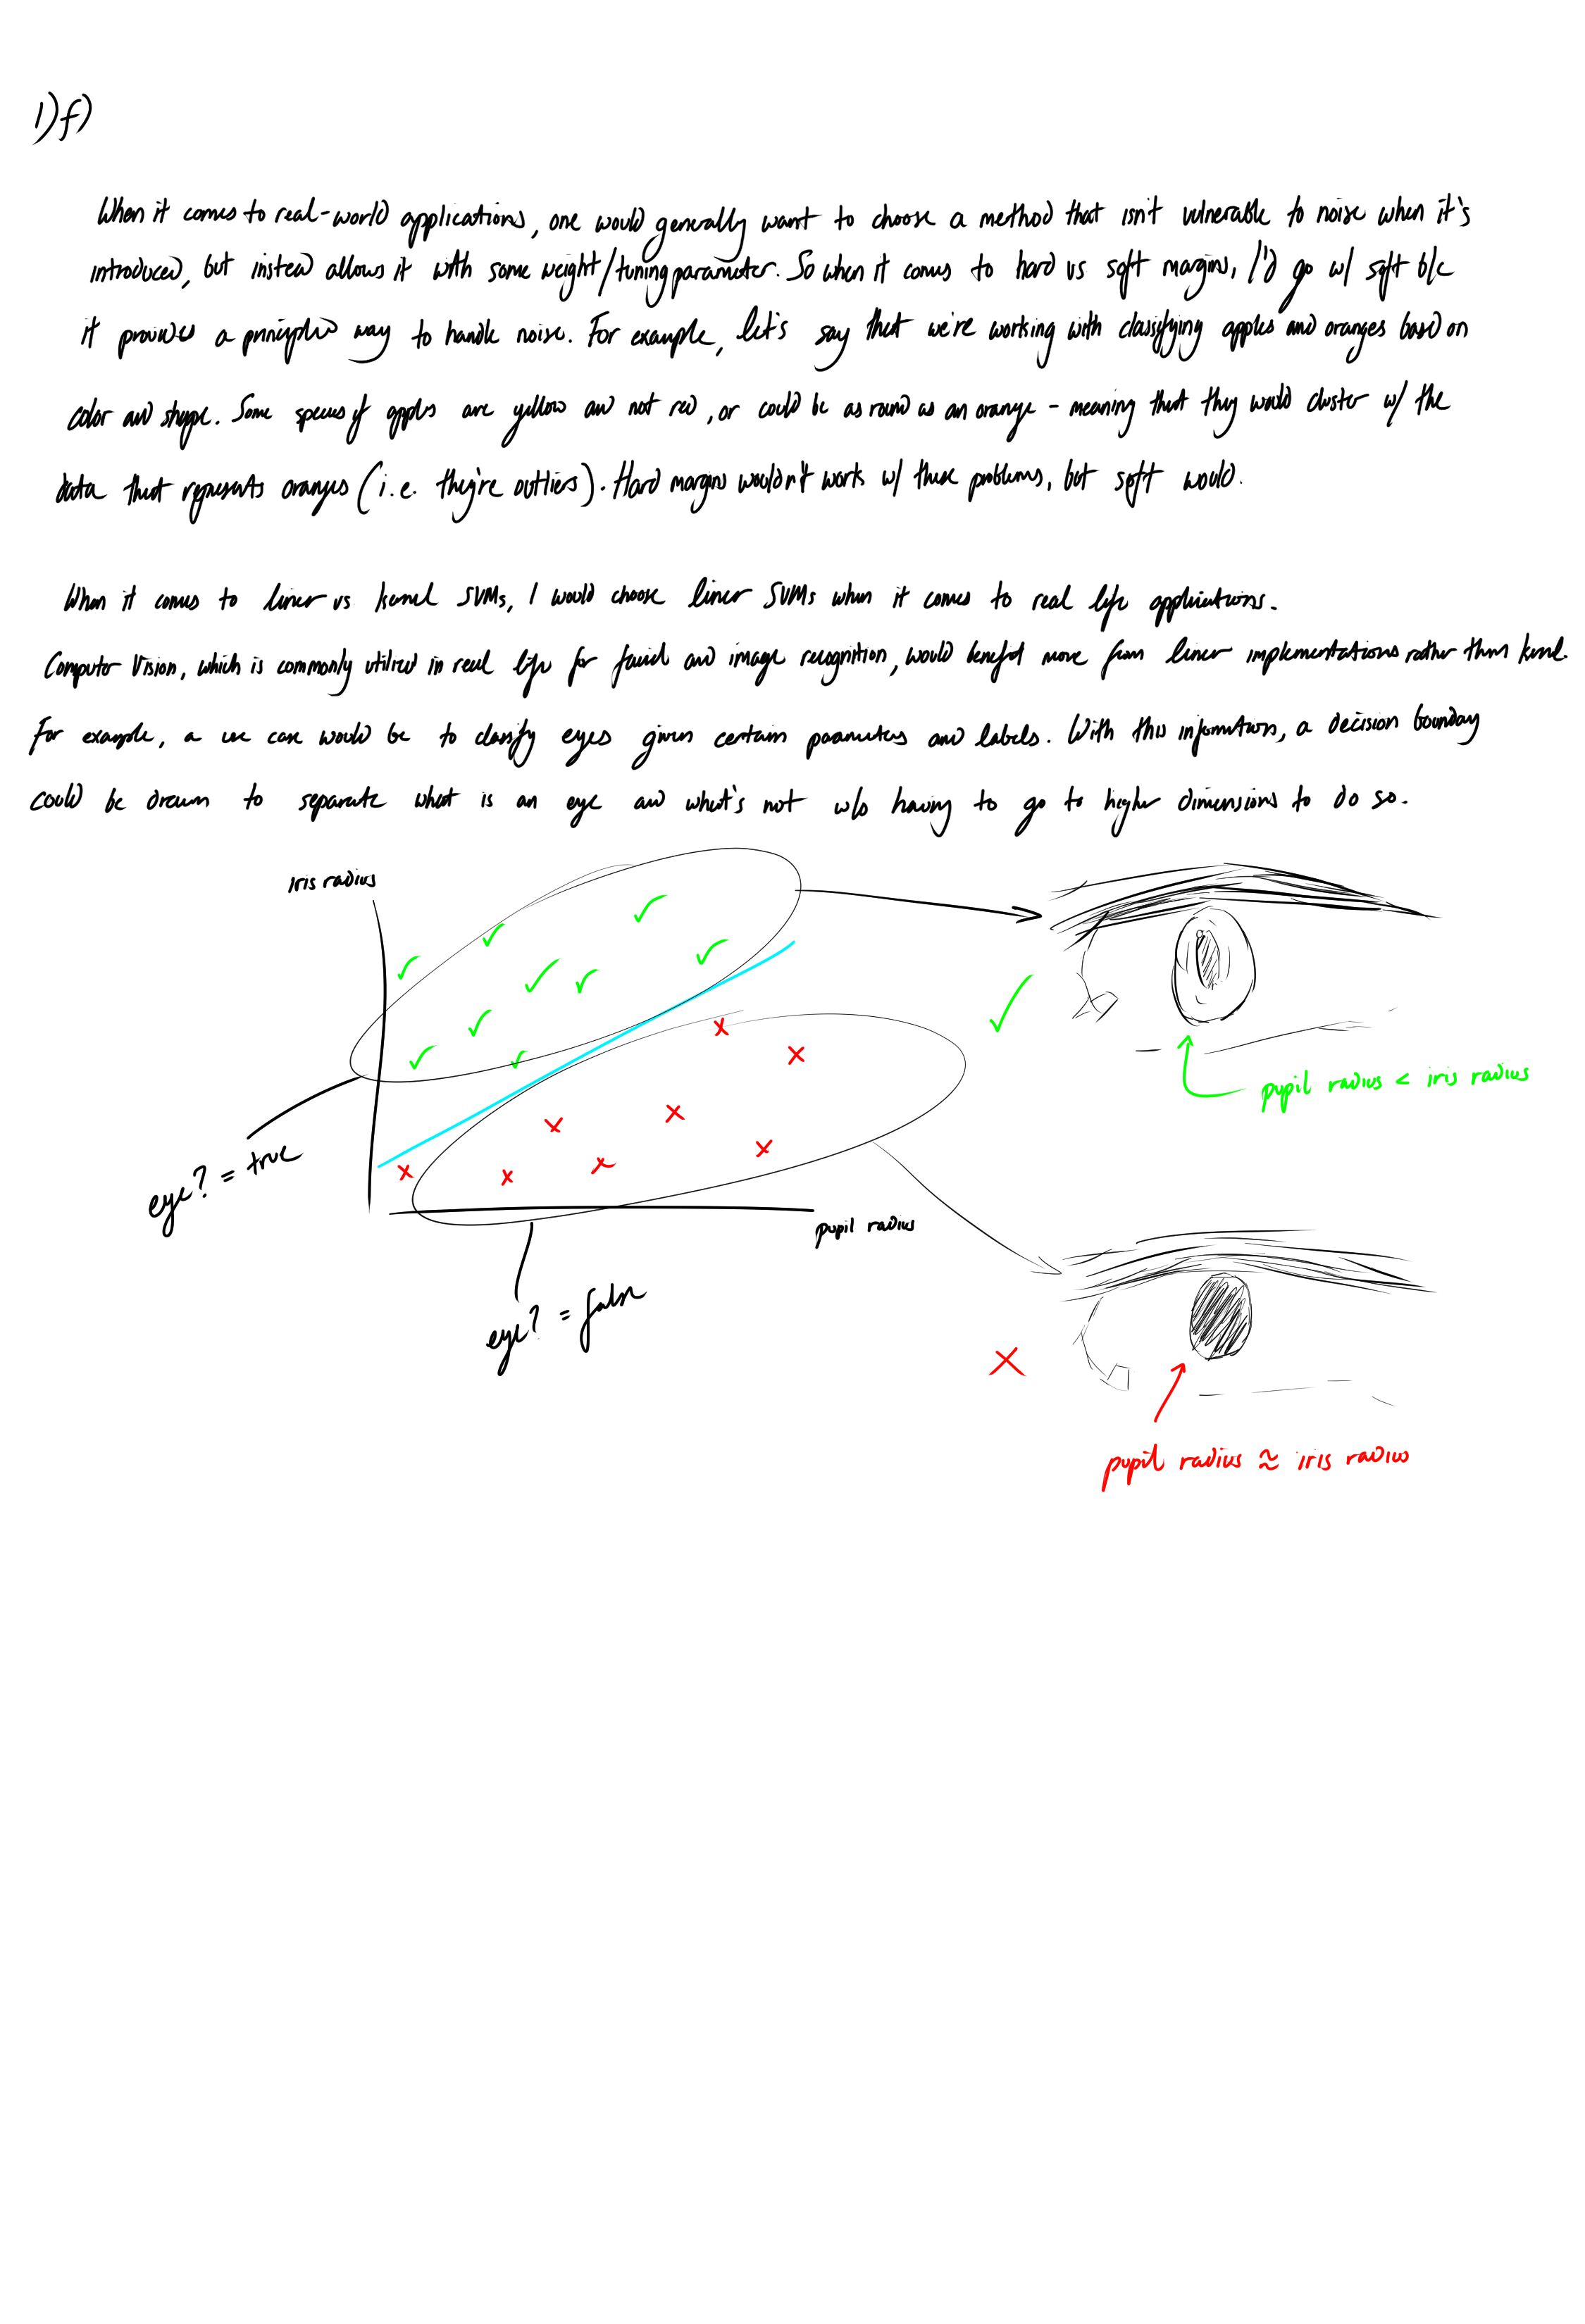 1)f)
When it comes to real-world applications, one would generally want to choose a method that isn't vulnerable to noise when it's
introduced, but instead allows it with some weight/tuning parameter. So when it comes to hard vs soft margins, I'd go w/ soft b/c
it provides a principled way to handle noise. For example, let's say that we're working with classifying apples and oranges based on
color and shape. Some species of apples are yellow and not red, or could be as round as an orange - meaning that they would cluster w/ the
data that represents oranges (i.e. they're outliers). Hard margins wouldn't work w/ these problems, but soft would.
When it comes to linear vs kernel SVMs, I would choose linear SVMs when it comes to real life applications.
Computer Vision, which is commonly utilized in real life for facial and image recognition, would benefit more from linear implementations rather than kernel.
For example, a use case would be to classify eyes given certain parameters and labels. With this information, a decision boundary
could be drawn to separate what is an eye and what's not w/o having to go to higher dimensions to do so.
iris radius
pupil radius < iris radius
eye? = true
pupil radius
eye? = false
pupil radius ≈ iris radius